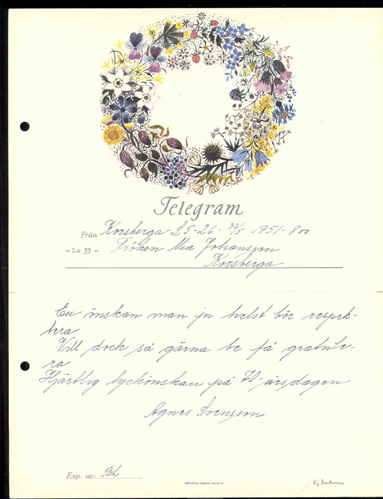 Telegram
Från Korsberga 25-26 30/5 1951 - 8 00
- Lx 33 - Fröken Mia Johansson
Korsberga
En önskan man ju helst bör respek-
tera
Vill dock så gärna be få gratule-
ra
Hjärtlig lyckönskan på 70-årsdagen
Agnes Svensson
Exp. av: